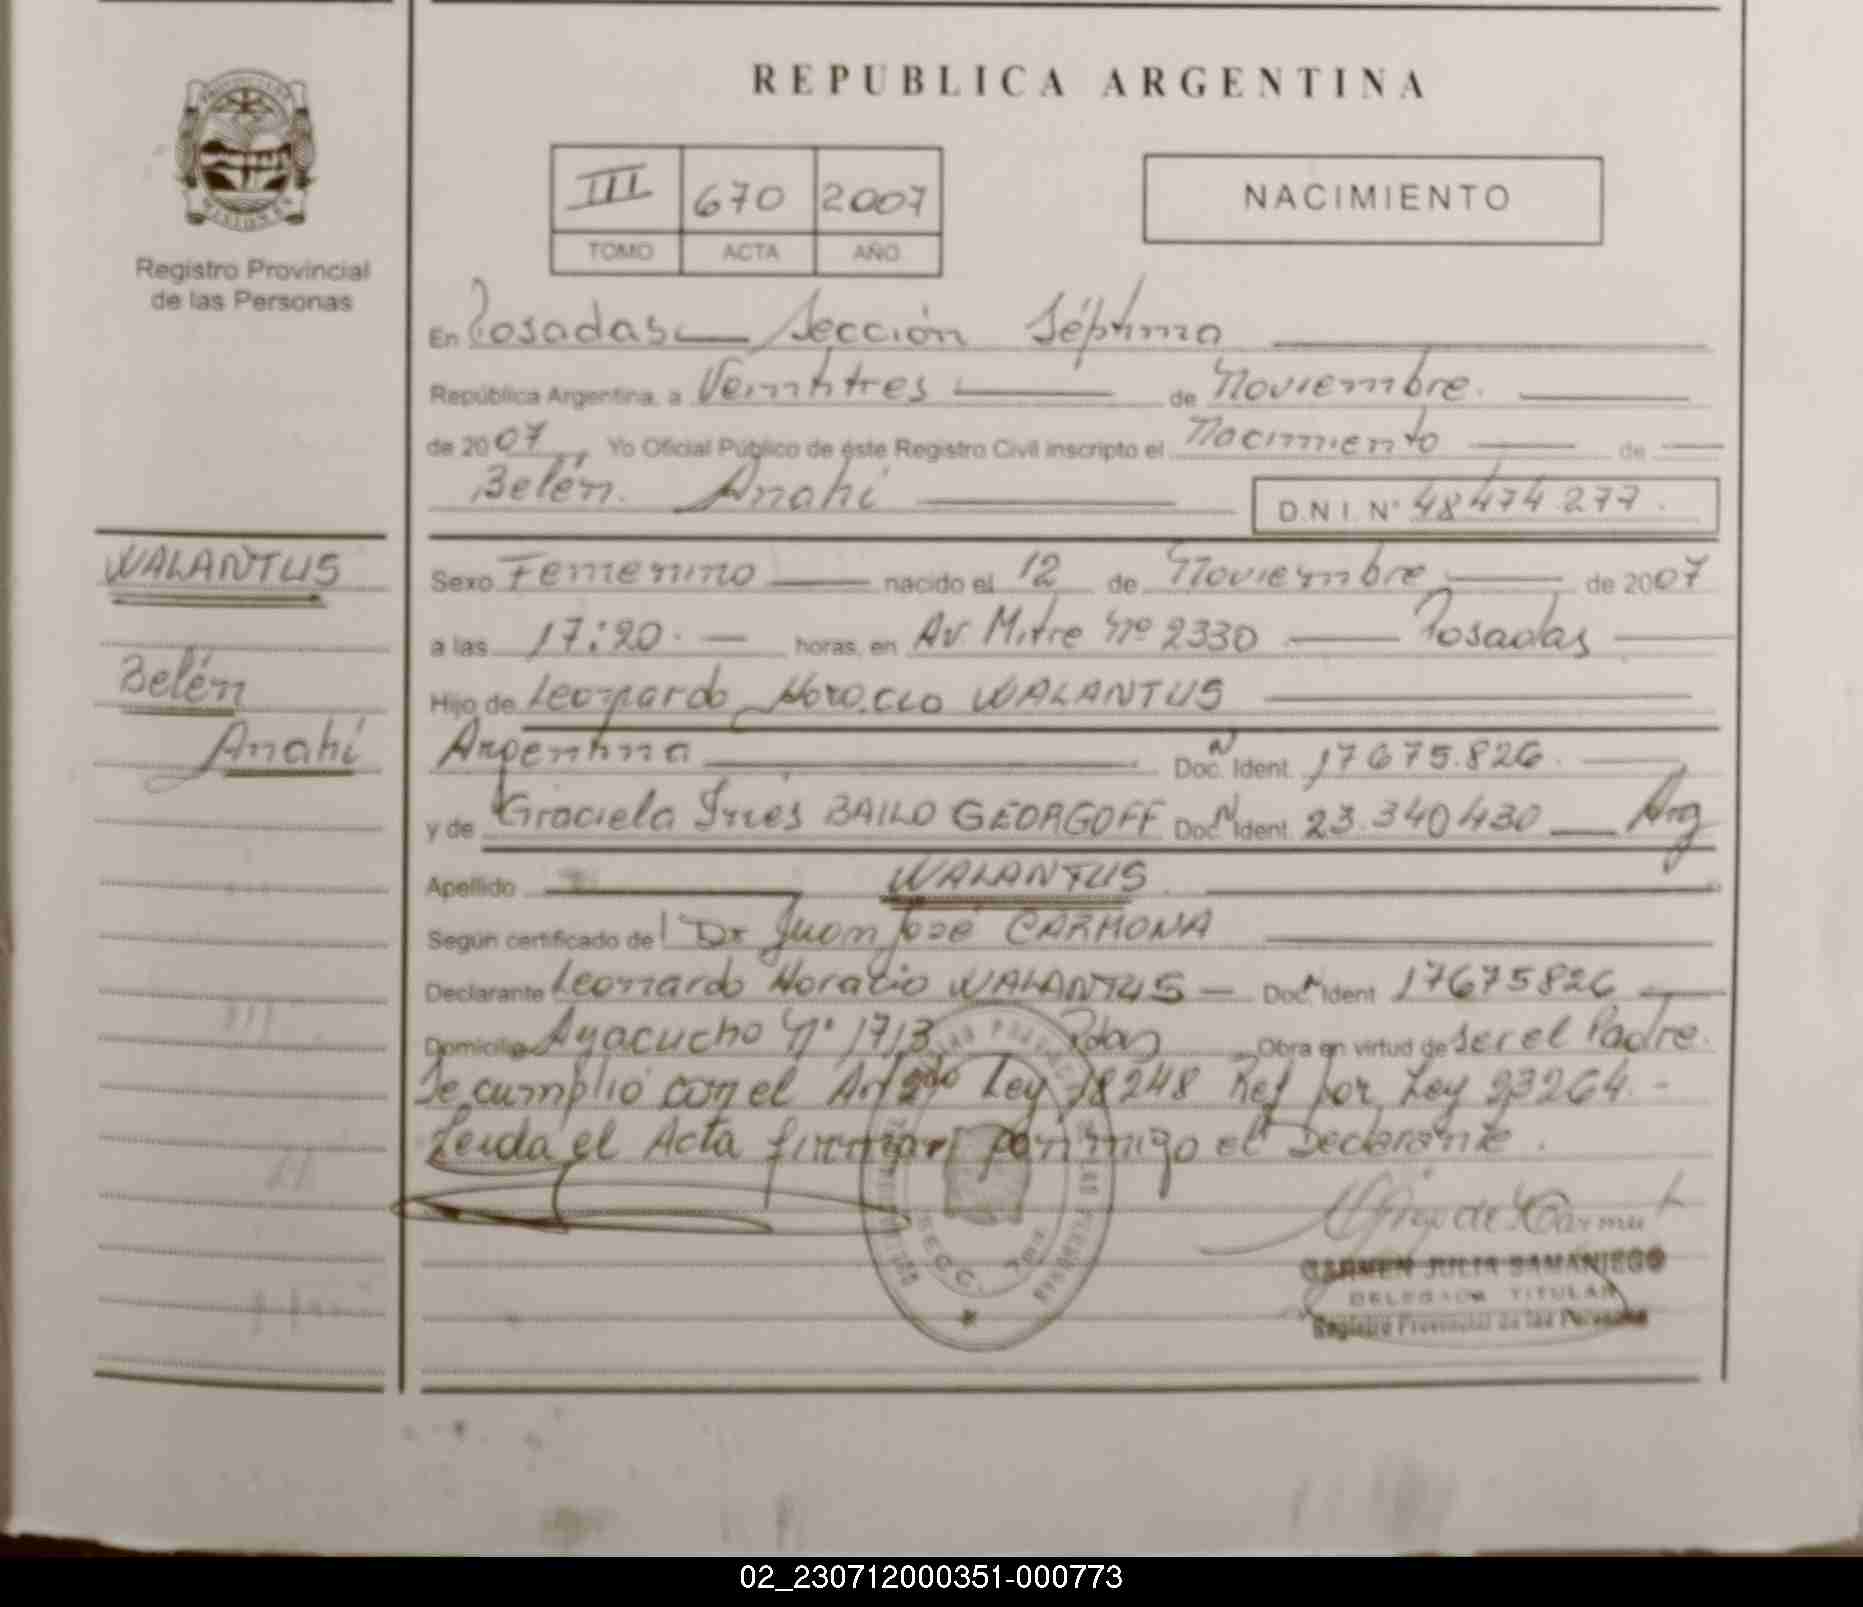 REPUBLICA ARGENTINA
III 670 2007
TOMO ACTA AÑO
NACIMIENTO
Registro Provincial
de las Personas
En Posadas Sección Séptima
República Argentina, a Veintitres de Noviembre.
de 2007, Yo Oficial Público de éste Registro Civil inscripto el Nacimiento de
Belén Anahí D.N.I. Nº 48474.277.
WALANTUS
Belén
Anahí
Sexo Femenino nacido el 12 de Noviembre de 2007
a las 17:20 horas, en Av. Mitre Nº 2330 Posadas
Hijo de Leonardo Horacio WALANTUS
Argentina Doc. N Ident. 17675.826.
y de Graciela Inés BAILO GEORGOFF Doc. N Ident. 23.340430 Arg
Apellido WALANTUS
Según certificado de Dr Juan José CARMONA
Declarante Leonardo Horacio WALANTUS Doc. N Ident 17675826
Domicilio Ayacucho Nº 1713 Pdas Obra en virtud de ser el Padre.
Se cumplió con el Art 2do Ley 18248 Ref por Ley 23264.-
Leida el Acta firman conmigo el Declarante.
SECC. 7ma
CARMEN JULIA SAMANIEGO
DELEGADA TITULAR
Registro Provincial de las Personas
02_230712000351-000773